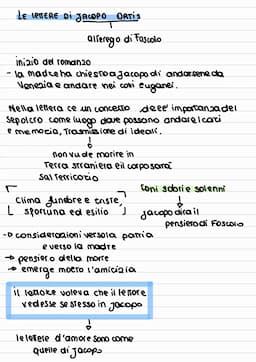 LE LETTERE DI JACOPO ORTIS
alter ego di Foscolo
inizio del romanzo
- la madre ha chiesto a Jacopo di andarsene da
Venezia e andare nei colli euganei.
Nella lettera c'e un concetto dell'importanza del
sepolcro come luogo dove possono andare i cari
e memoria, trasmissione di ideali.
non vuole morire in
terra straniera e il corpo sarà
sul territorio
clima funebre e triste,
sfortuna ed esilio
toni sobri e solenni
jacopo dira il
pensiero di Foscolo
-> considerazioni verso la patria
e verso la madre
-> pensiero della morte
-> emerge molto l'amicizia
il lettore voleva che il lettore
vedesse se stesso in Jacopo
le lettere d'amore sono come
quelle di Jacopo